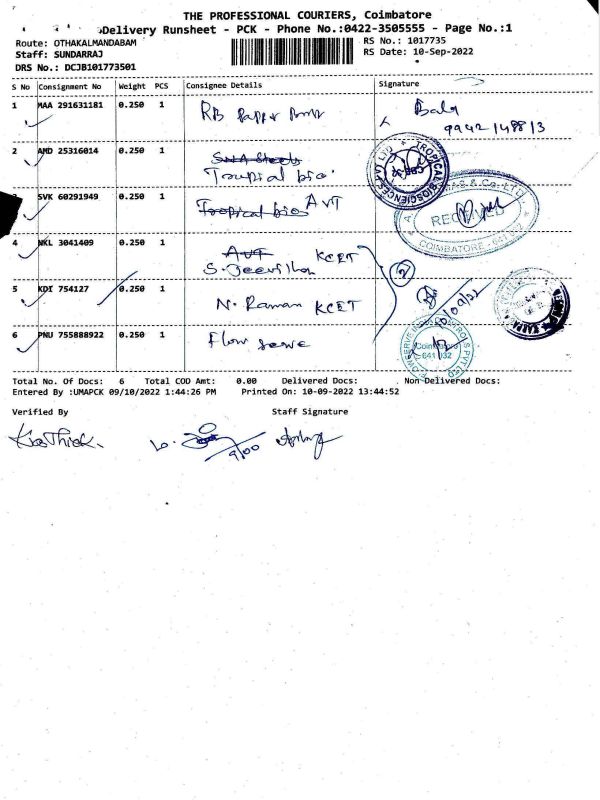 THE PROFESSIONAL COURIERS, Coimbatore
Delivery Runsheet - PCK - Phone No.:0422-3505555 - Page No.:1
Route: OTHAKALMANDABAM
RS No.: 1017735
Staff: SUNDARRAJ
RS Date: 10-Sep-2022
DRS No.: DCJB101773501
S No Consignment No Weight PCS Consignee Details Signature
1 MAA 291631181 0.250 1 RB Bala
9942148813
2 AMD 25316014 0.250 1 SNA Steels
Tropical bio
TROPICAL BIOSCIENCES PVT LTD
3 SVK 60291949 0.250 1 Tropical bio AVT
& Co. LTD.
RECEIVED
COIMBATORE - 641 032
4 NKL 3041409 0.250 1 AVT KCET
S. Jeevithan
2
5 KDI 754127 0.250 1 N. Raman KCET
10/09/22
6 PNU 755888922 0.250 1 Flow serve
FLOWSERVE INDIA CONTROLS PVT LTD
Coimbatore
641 032
Total No. Of Docs: 6 Total COD Amt: 0.00 Delivered Docs: Non Delivered Docs:
Entered By :UMAPCK 09/10/2022 1:44:26 PM Printed On: 10-09-2022 13:44:52
Verified By Staff Signature
Karthick.
9/00